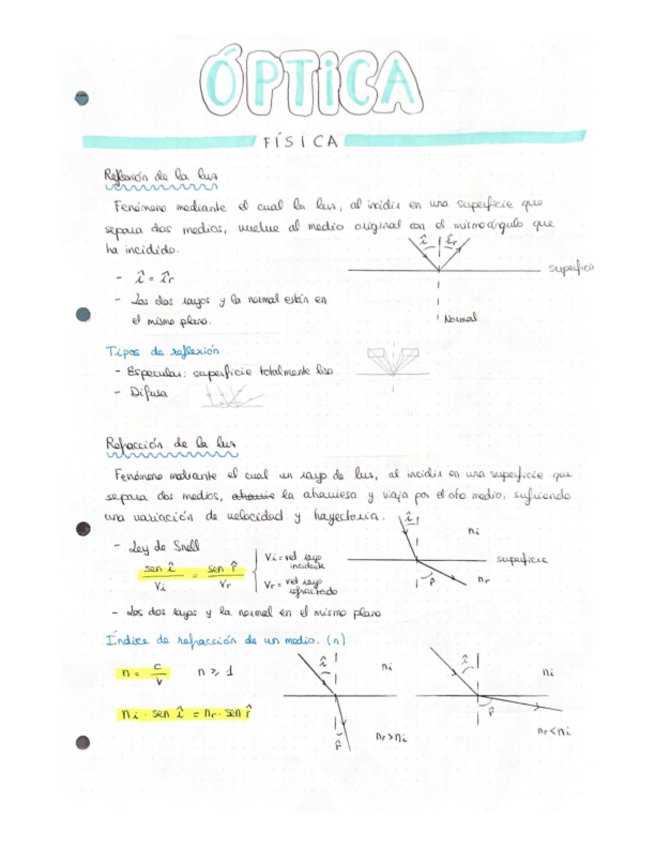 ÓPTICA
FÍSICA
Reflexión de la luz
Fenómeno mediante el cual la luz, al incidir en una superficie que
separa dos medios, vuelve al medio original con el mismo ángulo que
ha incidido.
î îr
superficie
- î = îr
- Los dos rayos y la normal están en
el mismo plano.
Normal
Tipos de reflexión
- Especular: superficie totalmente lisa
- Difusa
Refracción de la luz
Fenómeno mediante el cual un rayo de luz, al incidir en una superficie que
separa dos medios, la atraviesa y viaja por el otro medio, sufriendo
una variación de velocidad y trayectoria.
î
ni
- Ley de Snell
sen î / vi = sen r̂ / vr
Vi = vel rayo incidente
Vr = vel rayo refractado
superficie
r̂ nr
- Los dos rayos y la normal en el mismo plano
Índice de refracción de un medio. (n)
n = c / v n ≥ 1
î ni
î ni
ni · sen î = nr · sen r̂
r̂ nr>ni
r̂ nr<ni